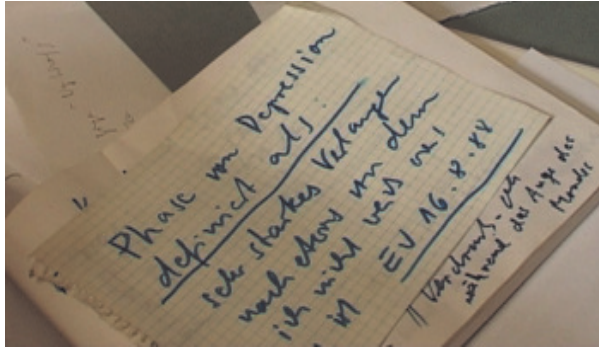 Phase von Depression
definiert als:
sehr starkes Verlangen
nach etwas von dem
ich nicht weis was
ist EV 16.8.88
während das Auge des
Mondes